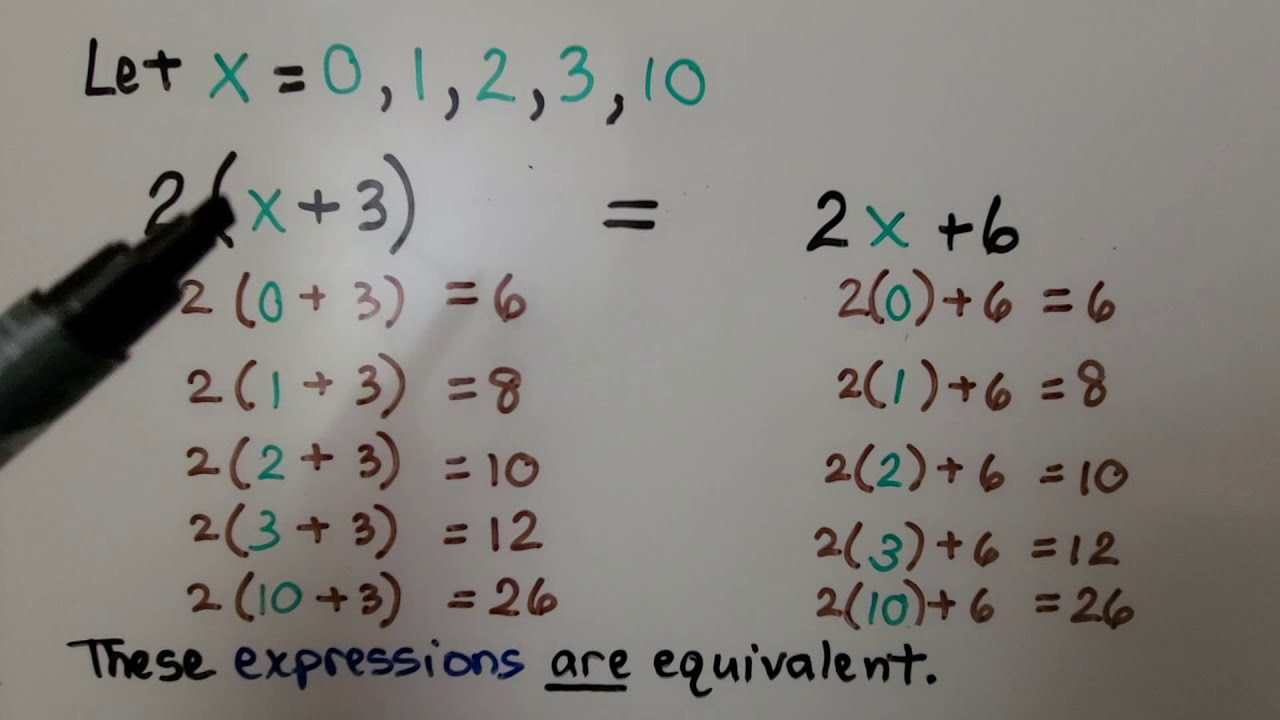 Let x = 0, 1, 2, 3, 10
2(x + 3) = 2x + 6
2(0 + 3) = 6 2(0) + 6 = 6
2(1 + 3) = 8 2(1) + 6 = 8
2(2 + 3) = 10 2(2) + 6 = 10
2(3 + 3) = 12 2(3) + 6 = 12
2(10 + 3) = 26 2(10) + 6 = 26
These expressions are equivalent.